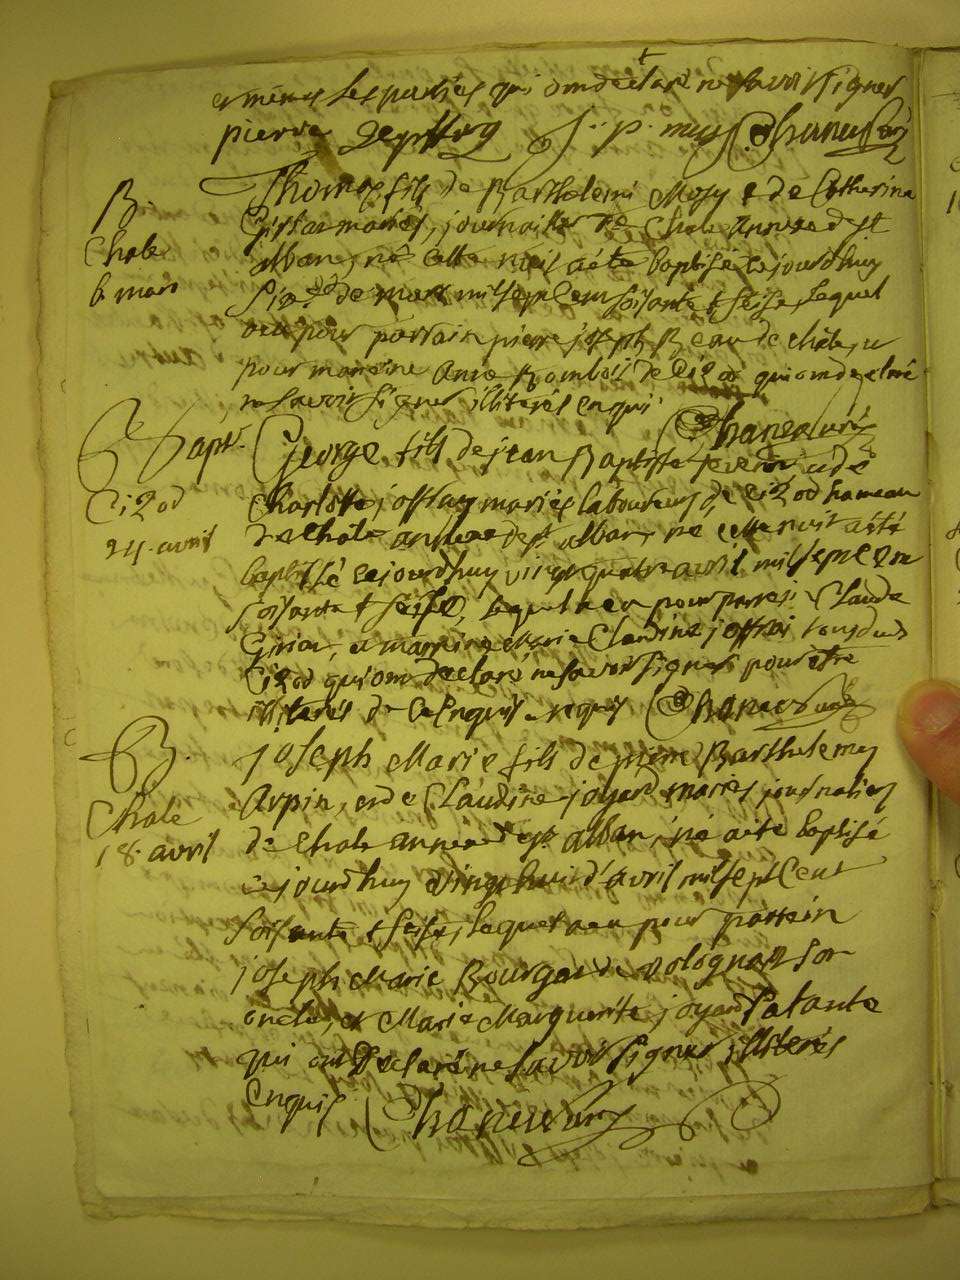 et mères les parties qui ont declaré ne savoir signer
pierre J. p. Chanersburg
B.
Chale
6 mars
Thomas fils de Barthelemi Mosy & de Catherina
mariés, journallier de Chale annexe de st
alban, né cette nuit a été baptisé cejourdhuy
six de mars mil sept cent soisante & seise, lequel
a eu pour parrain pierre joseph Beau de chale, et
pour marraine de Cizod qui ont declaré
ne savoir signer illiterés enquis
Bapt.
Cizod
24 avril
George fils de jean Baptiste et de
Charlotte joffray mariés laboureurs de Cizod hameau
de Chale annexe de st alban, né cette nuit a été
baptisé cejourdhuy vingt quatre avril mil sept cent
soisante & seise, lequel a eu pour parrein Claude
et marraine Marie Claudine joffrai tous deux de
Cizod qui ont declaré ne savoir signer pour etre
illiterés de ce enquis requis
B.
Chale
18 avril
joseph Marie fils de pierre Barthelemy
Arpin, et de Claudine joyard mariés journaliers
de Chale annexe de st alban, né a été baptisé
cejourdhuy vingt huit d'avril mil sept Cent
soisante & seise, lequel a eu pour parrein
joseph Marie Bourgat de vologniat son
oncle, et Marie Marguerite joyard sa tante
qui ont declaré ne savoir signer illiterés
Enquis